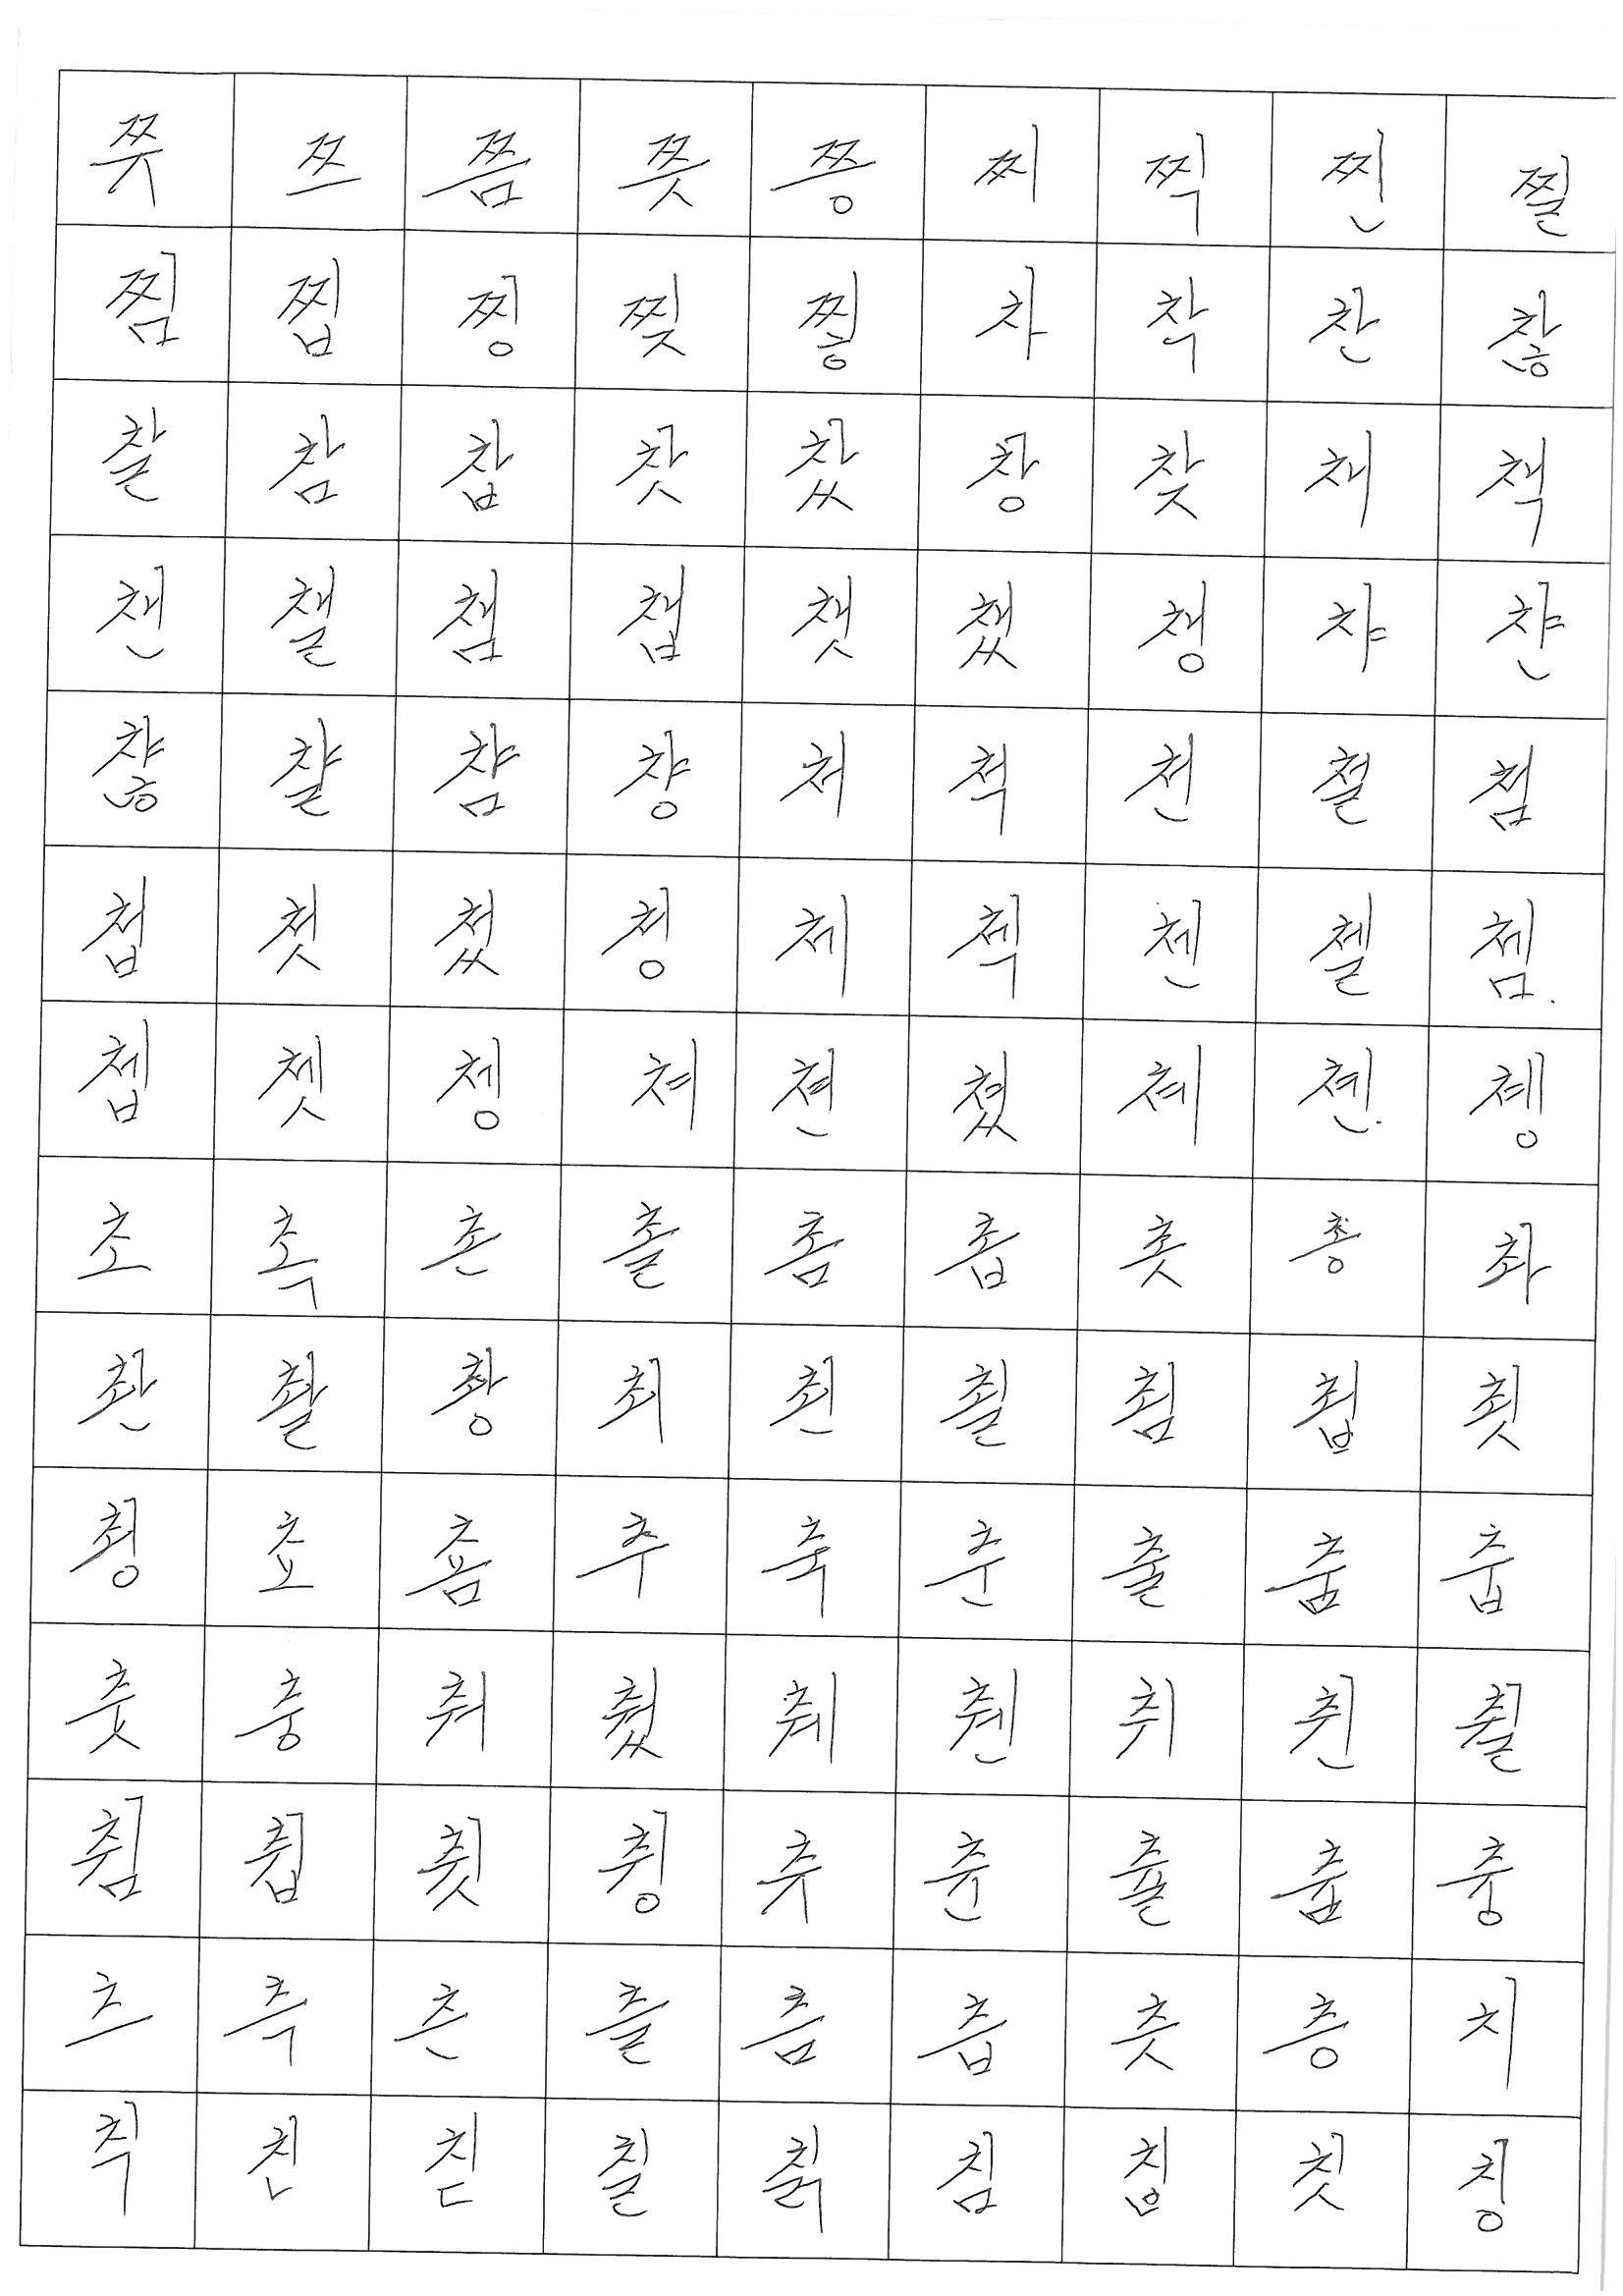 쯋 쯔 쯤 쯧 쯩 찌 찍 찐 찔
찜 찝 찡 찢 찧 차 착 찬 찮
찰 참 찹 찻 찼 창 찾 채 책
챈 챌 챔 챕 챗 챘 챙 챠 챤
챦 챨 챰 챵 처 척 천 철 첨
첩 첫 첬 청 체 첵 첸 첼 쳄
쳅 쳇 쳉 쳐 쳔 쳤 쳬 쳰 촁
초 촉 촌 촐 촘 촙 촛 총 촤
촨 촬 촹 최 쵠 쵤 쵬 쵭 쵯
쵱 쵸 춈 추 축 춘 출 춤 춥
춧 충 춰 췄 췌 췐 취 췬 췰
췸 췹 췻 췽 츄 츈 츌 츔 츙
츠 측 츤 츨 츰 츱 츳 층 치
칙 친 칟 칠 칡 침 칩 칫 칭